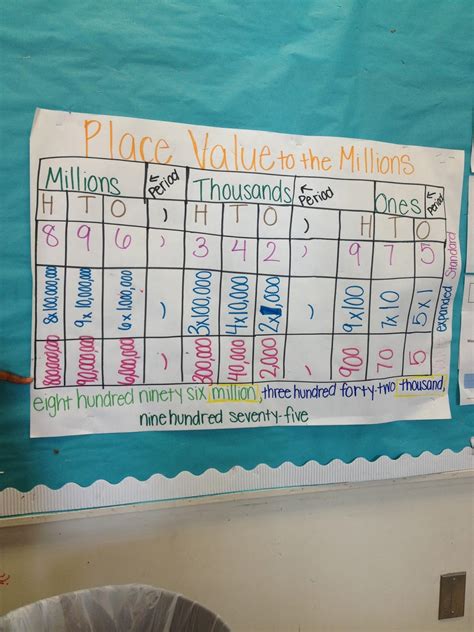 Place Value to the Millions
Millions ← Period Thousands ← Period Ones ← Period
H T O , H T O , H T O
8 9 6 , 3 4 2 , 9 7 5 Standard
8x100,000,000 9x10,000,000 6x1,000,000 , 3x100,000 4x10,000 2x1,000 , 9x100 7x10 5x1 expanded
800,000,000 90,000,000 6,000,000 300,000 40,000 2,000 , 900 70 5
eight hundred ninety six million, three hundred forty-two thousand,
nine hundred seventy-five